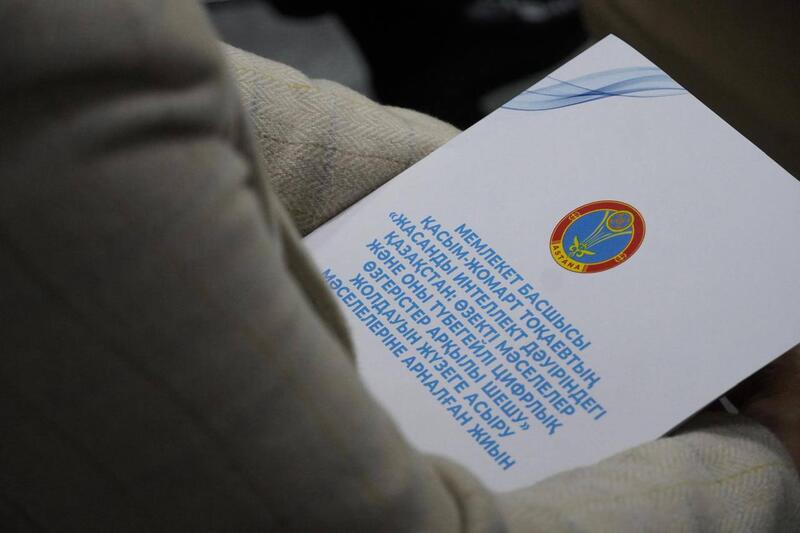 ASTANA
МЕМЛЕКЕТ БАСШЫСЫ
ҚАСЫМ-ЖОМАРТ ТОҚАЕВТЫҢ
«ЖАСАНДЫ ИНТЕЛЛЕКТ ДӘУІРІНДЕГІ
ҚАЗАҚСТАН: ӨЗЕКТІ МӘСЕЛЕЛЕР
ЖӘНЕ ОНЫ ТҮБЕГЕЙЛІ ЦИФРЛЫҚ
ӨЗГЕРІСТЕР АРҚЫЛЫ ШЕШУ»
ЖОЛДАУЫН ЖҮЗЕГЕ АСЫРУ
МӘСЕЛЕЛЕРІНЕ АРНАЛҒАН ЖИЫН